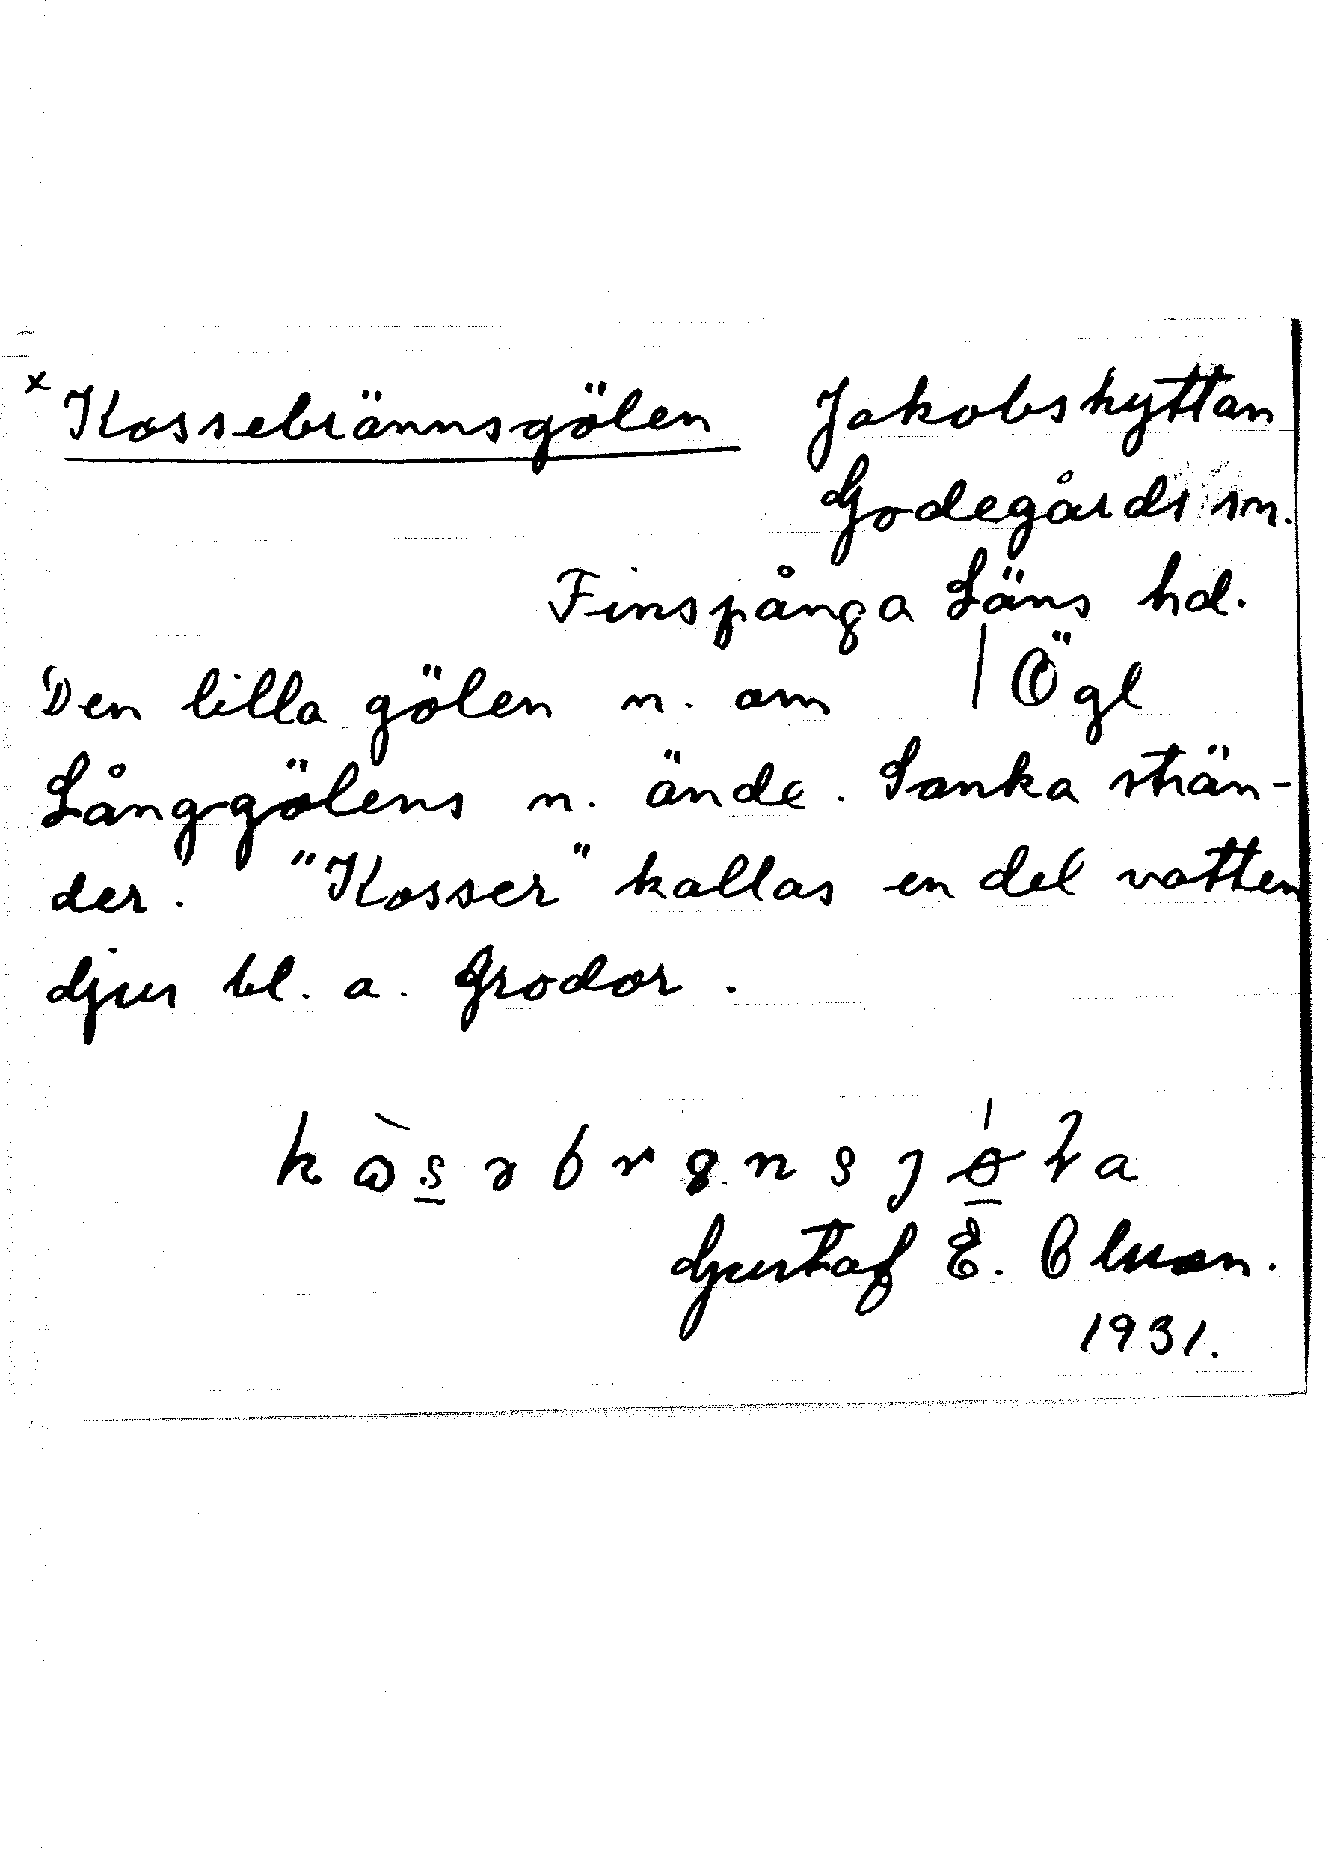 x Kossebrännsgölen Jakobshyttan
Godegårds sn.
Finspånga Läns hd.
Den lilla gölen n. om | Ögl
Långgölens n. ände. Sanka strän-
der. "Kosser" kallas en del vatten
djur bl. a. Grodor.
Gustaf E.
1931.